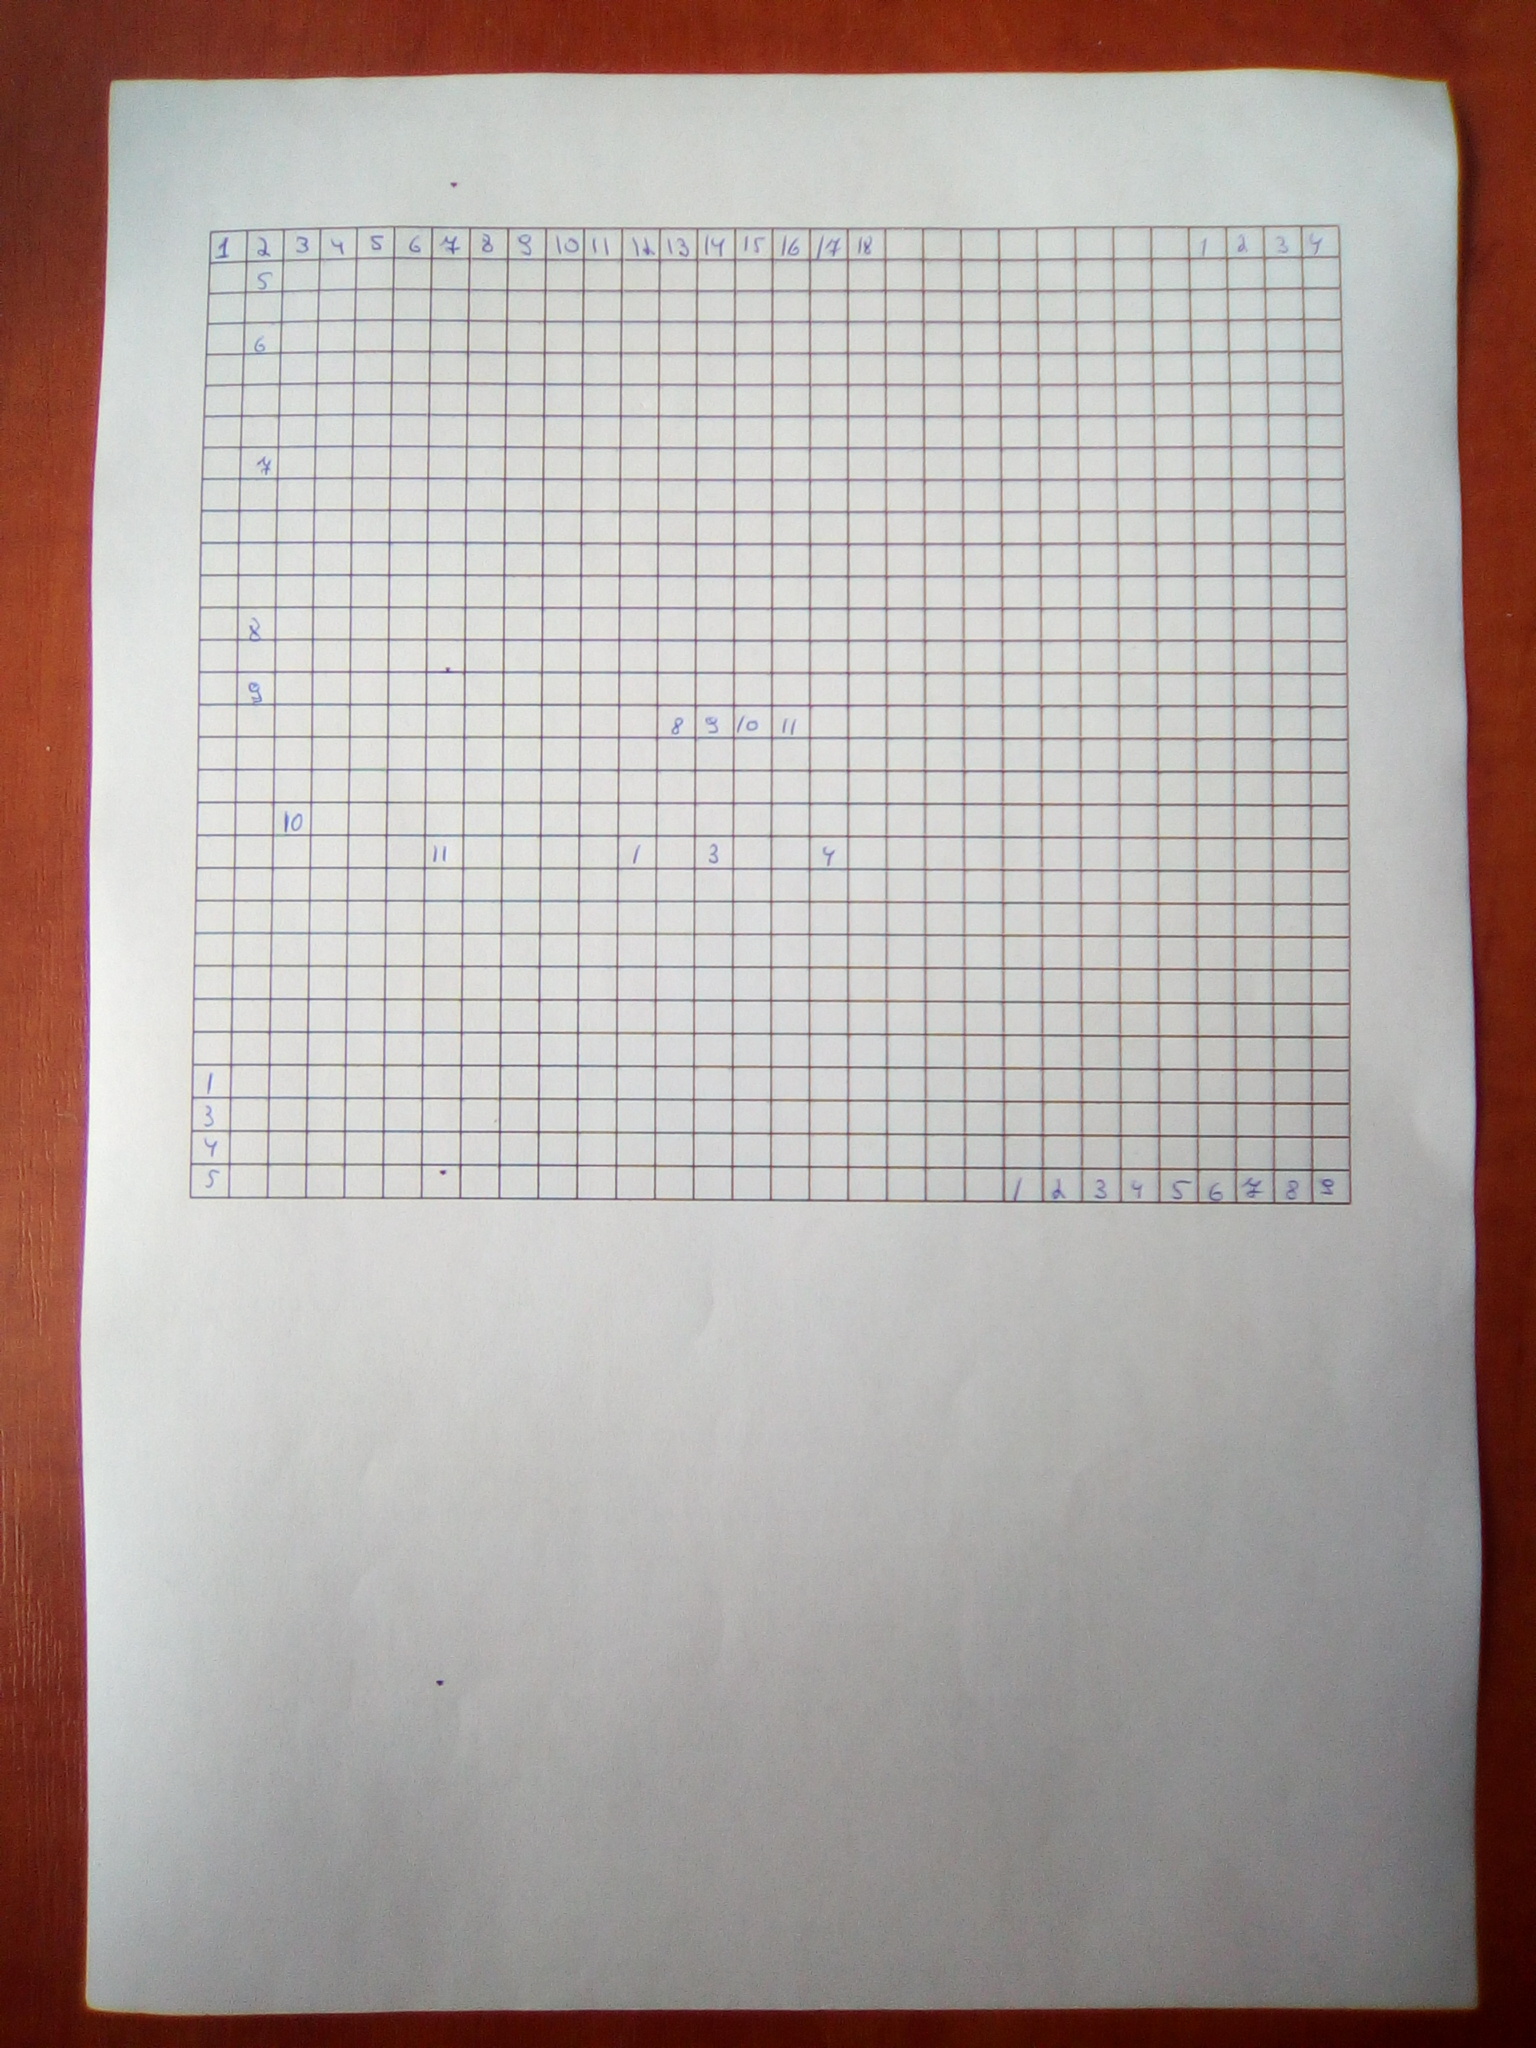 1 2 3 4 5 6 7 8 9 10 11 12 13 14 15 16 17 18 1 2 3 4
5
6
7
8
9
8 9 10 11
10
11 1 3 4
1
3
4
5 1 2 3 4 5 6 7 8 9